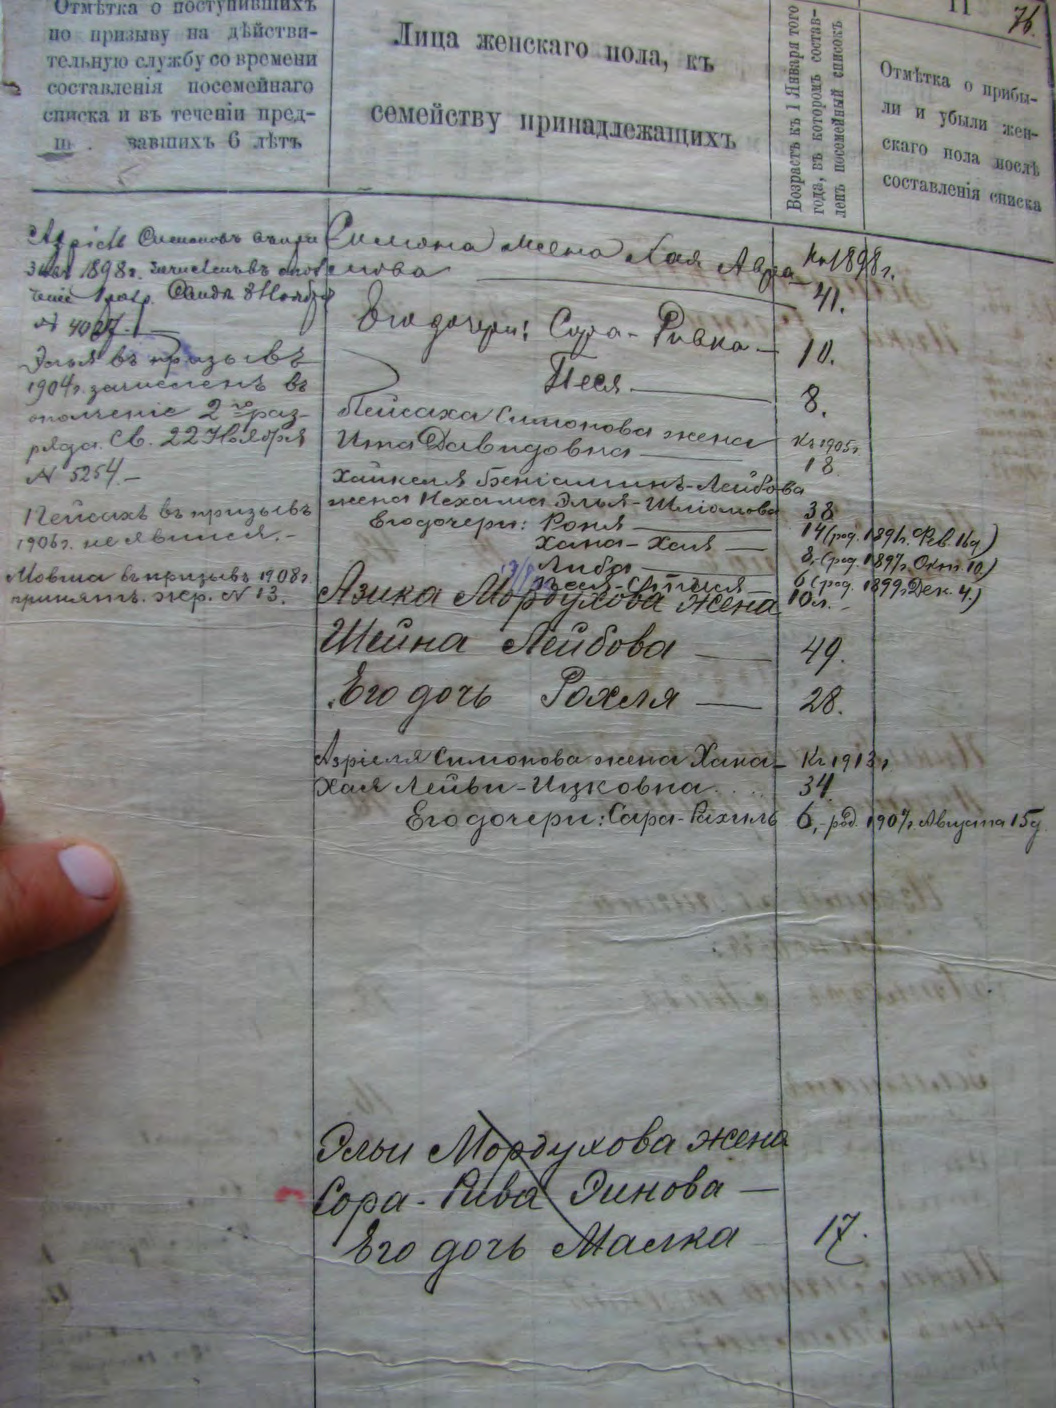 Отмѣтка о поступившихъ
по призыву на дѣйстви-
тельную службу со времени
составленія посемейнаго
списка и въ теченіи пред-
вавшихъ 6 лѣтъ
Лица женскаго пола, къ
семейству принадлежащихъ
Возрастъ къ 1 Января того
года, въ которомъ состав-
ленъ посемейный списокъ
11
76.
Отмѣтка о прибы-
ли и убыли жен-
скаго пола послѣ
составленія списка
Азріель Симоновъ
1898г. зачисленъ
1 разр. 8 Ноября
№ 4027.
Элья въ призывѣ
1904г. зачисленъ въ
ополченіе 2го раз-
ряда. Св. 22 Ноября
№ 5254.-
Пейсахъ въ призывъ
1906г. не явился.-
Мовша въ призывъ 1908г.
принятъ. жр. № 13.
Симона жена Хая Авра-
мова
Къ 1898г.
41.
Его дочери: Сора-Ривка-
10.
Песя
8.
Пейсаха Симонова жена
Ита Давидовна
Къ 1905г
18.
Хайкеля Беніаминъ-Лейбова
жена Нехама Элья-Шліомова
38
Его дочери: Роня
14 (род. 1891г. Фев. 16д)
Хана-Хая
8,-(род. 1897г. Окт. 10)
Либа
6 (род. 1899г. Дек. 4.)
10л.-
Азика Мордухова жена
Шейна Лейбова
49.
Его дочь Рохля
28.
Азріеля Симонова жена Хана-
Хая Лейви-Ицковна
Къ 1913г
34
Его дочери: Сара-Рахиль
6,-род. 1907г. Августа 15д.
Эльи Мордухова жена
Сора-Рива Эинова
Его дочь Малка
17.